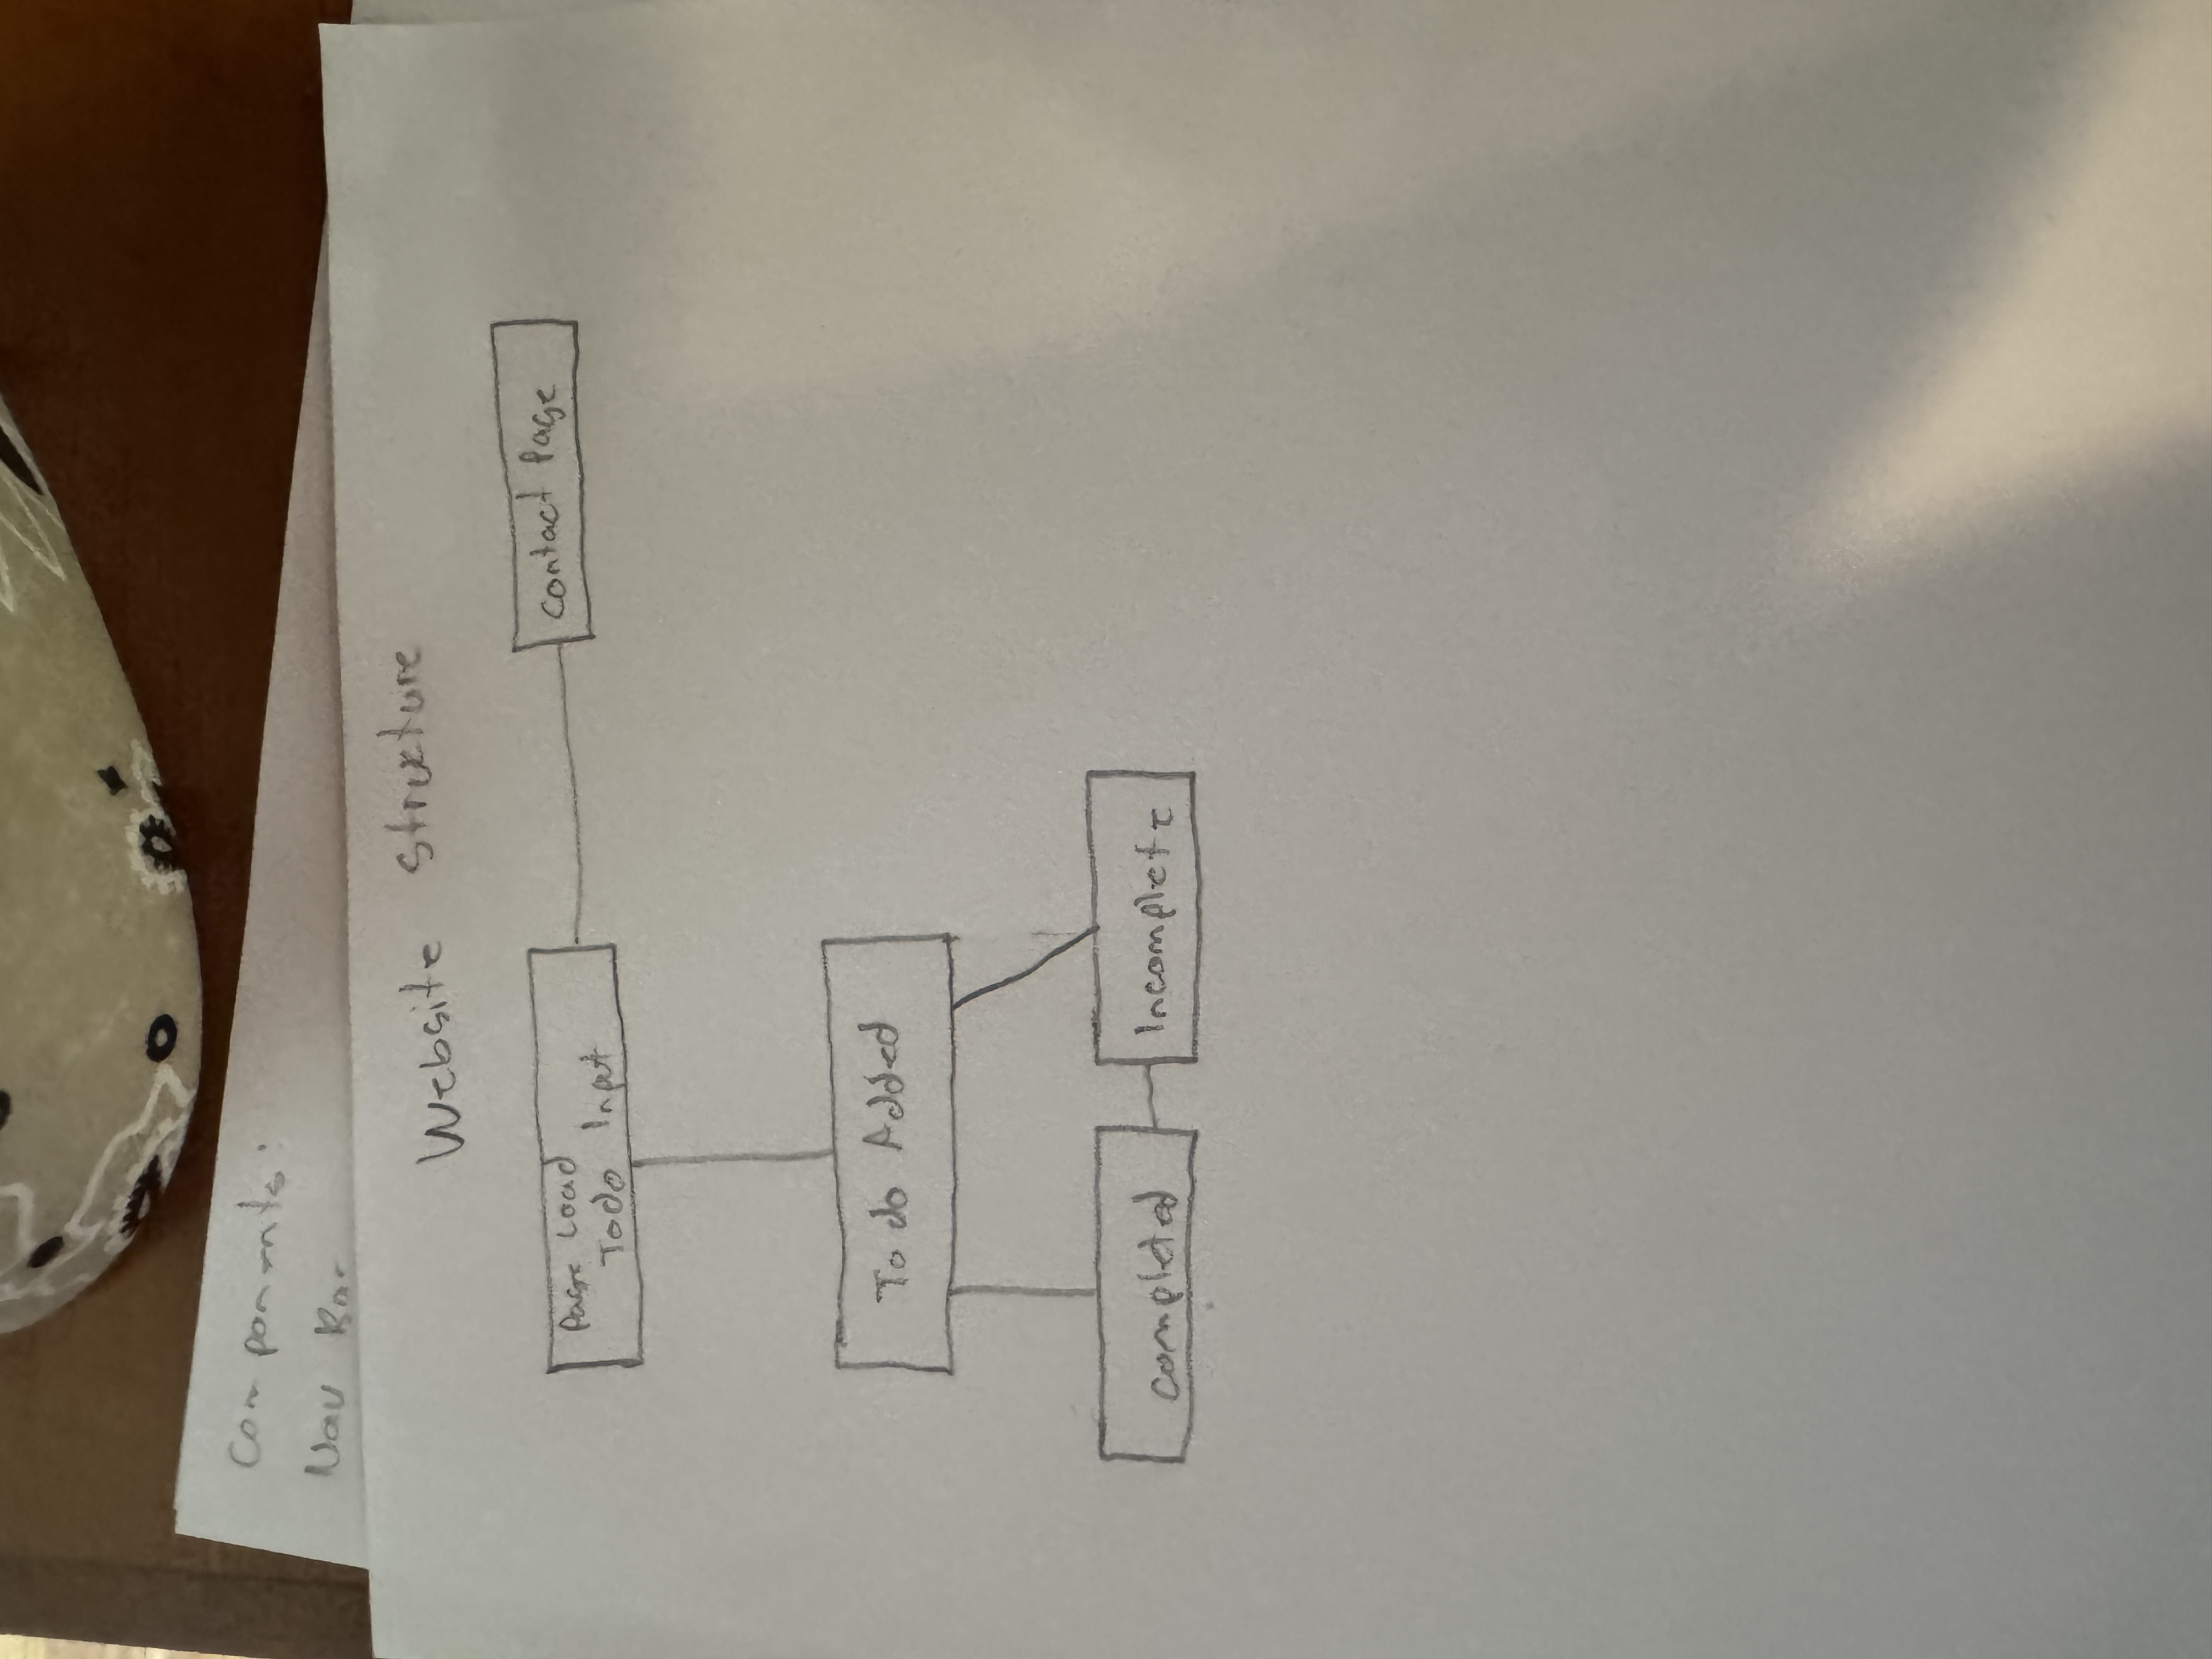 Components:
Nav Bar
Website Structure
Page Load
Todo Input
Contact Page
Todo Added
Completed
Incomplete